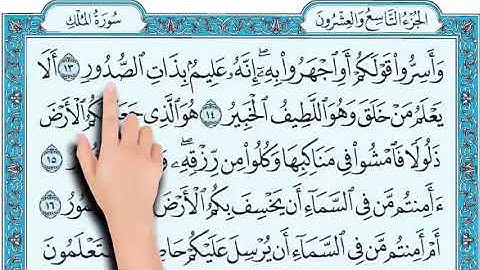 الجزء التاسع والعشرون
سورة الملك
وَأَسِرُّوا۟ قَوْلَكُمْ أَوِ ٱجْهَرُوا۟ بِهِۦٓ ۖ إِنَّهُۥ عَلِيمٌۢ بِذَاتِ ٱلصُّدُورِ ١٣ أَلَا
يَعْلَمُ مَنْ خَلَقَ وَهُوَ ٱللَّطِيفُ ٱلْخَبِيرُ ١٤ هُوَ ٱلَّذِى كُمُ ٱلْأَرْضَ
ذَلُولًا فَٱمْشُوا۟ فِى مَنَاكِبِهَا وَكُلُوا۟ مِن رِّزْقِهِۦ ۖ ١٥
ءَأَمِنتُم مَّن فِى ٱلسَّمَآءِ أَن يَخْسِفَ بِكُمُ ٱلْأَرْضَ ١٦
أَمْ أَمِنتُم مَّن فِى ٱلسَّمَآءِ أَن يُرْسِلَ عَلَيْكُمْ